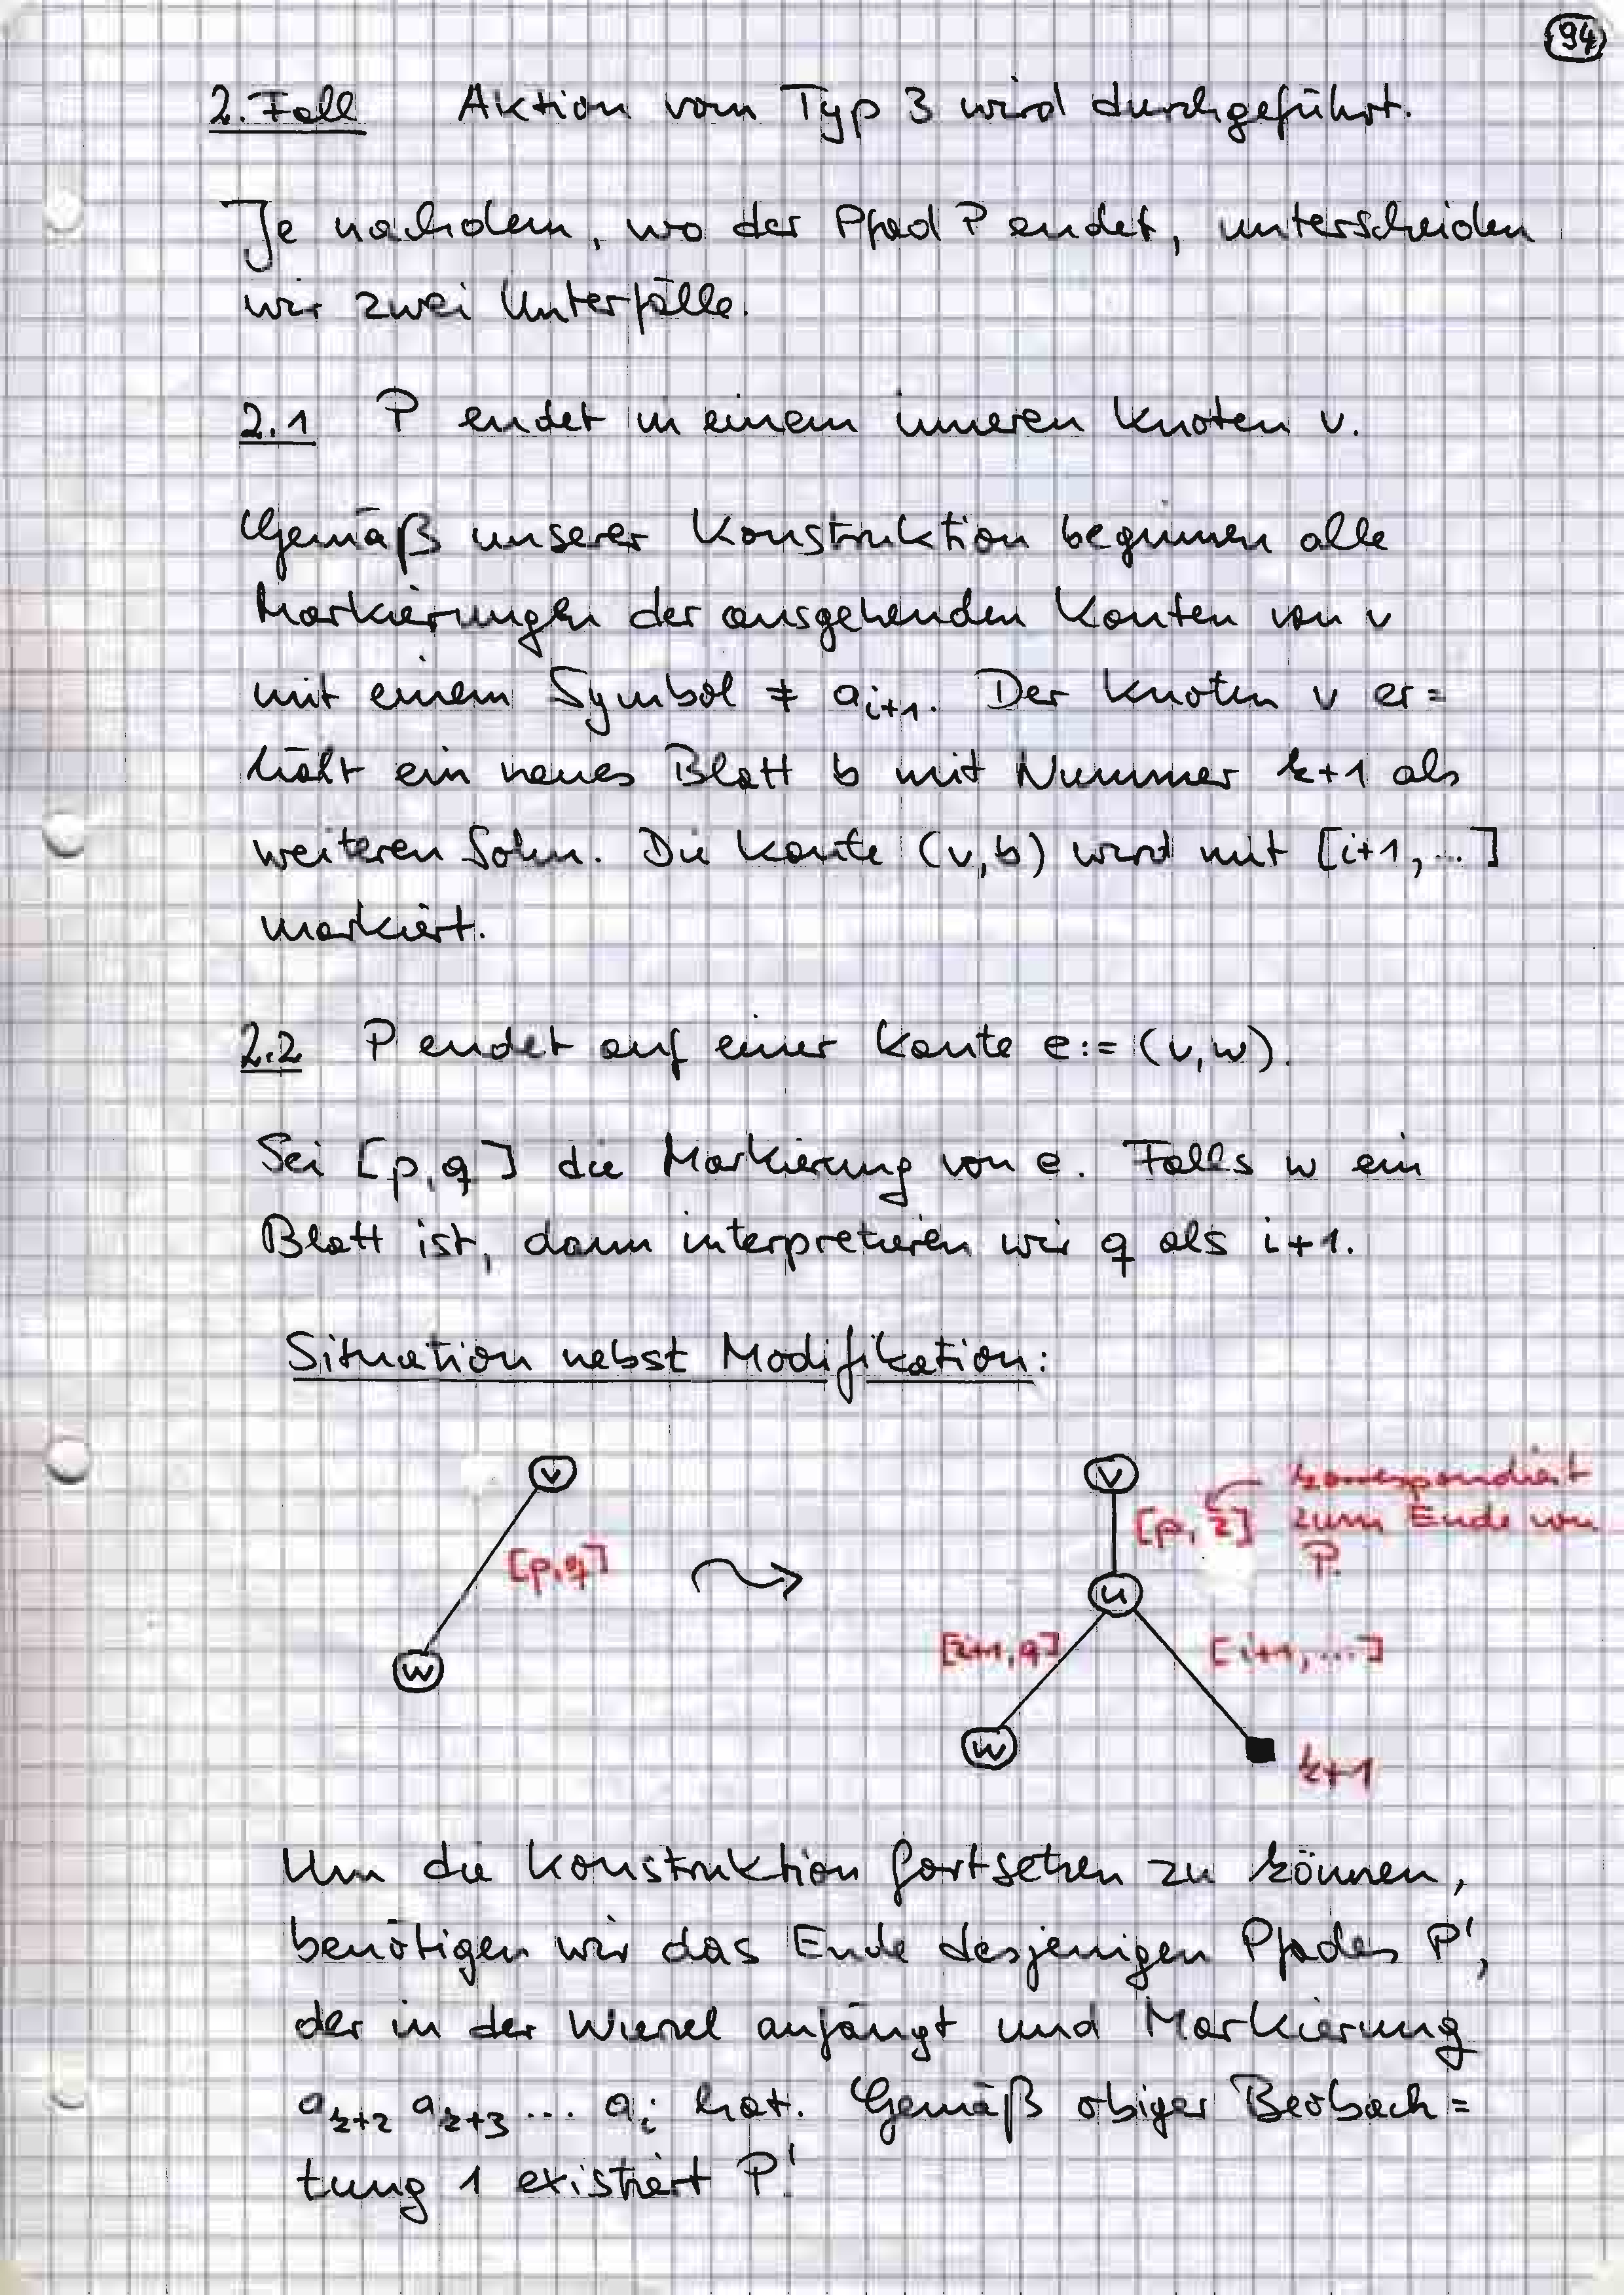 94
2. Fall Aktion vom Typ 3 wird durchgeführt.
Je nachdem, wo der Pfad P endet, unterscheiden
wir zwei Unterfälle.
2.1 P endet in einem inneren Knoten v.
Gemäß unserer Konstruktion beginnen alle
Markierungen der ausgehenden Kanten von v
mit einem Symbol ≠ a_{i+1}. Der Knoten v er=
hält ein neues Blatt b mit Nummer k+1 als
weiteren Sohn. Die Kante (v,b) wird mit [i+1,...]
markiert.
2.2 P endet auf einer Kante e:= (v,w).
Sei [p,q] die Markierung von e. Falls w ein
Blatt ist, dann interpretieren wir q als i+1.
Situation nebst Modifikation:
v
[p,q]
w
v
korrespondiert
zum Ende von
P.
u
[i+1,...]
w
k+1
Um die Konstruktion fortsetzen zu können,
benötigen wir das Ende desjenigen Pfades P',
der in der Wurzel anfängt und Markierung
a_{k+2} a_{k+3} ... a_i hat. Gemäß obiger Beobach=
tung 1 existiert P'.